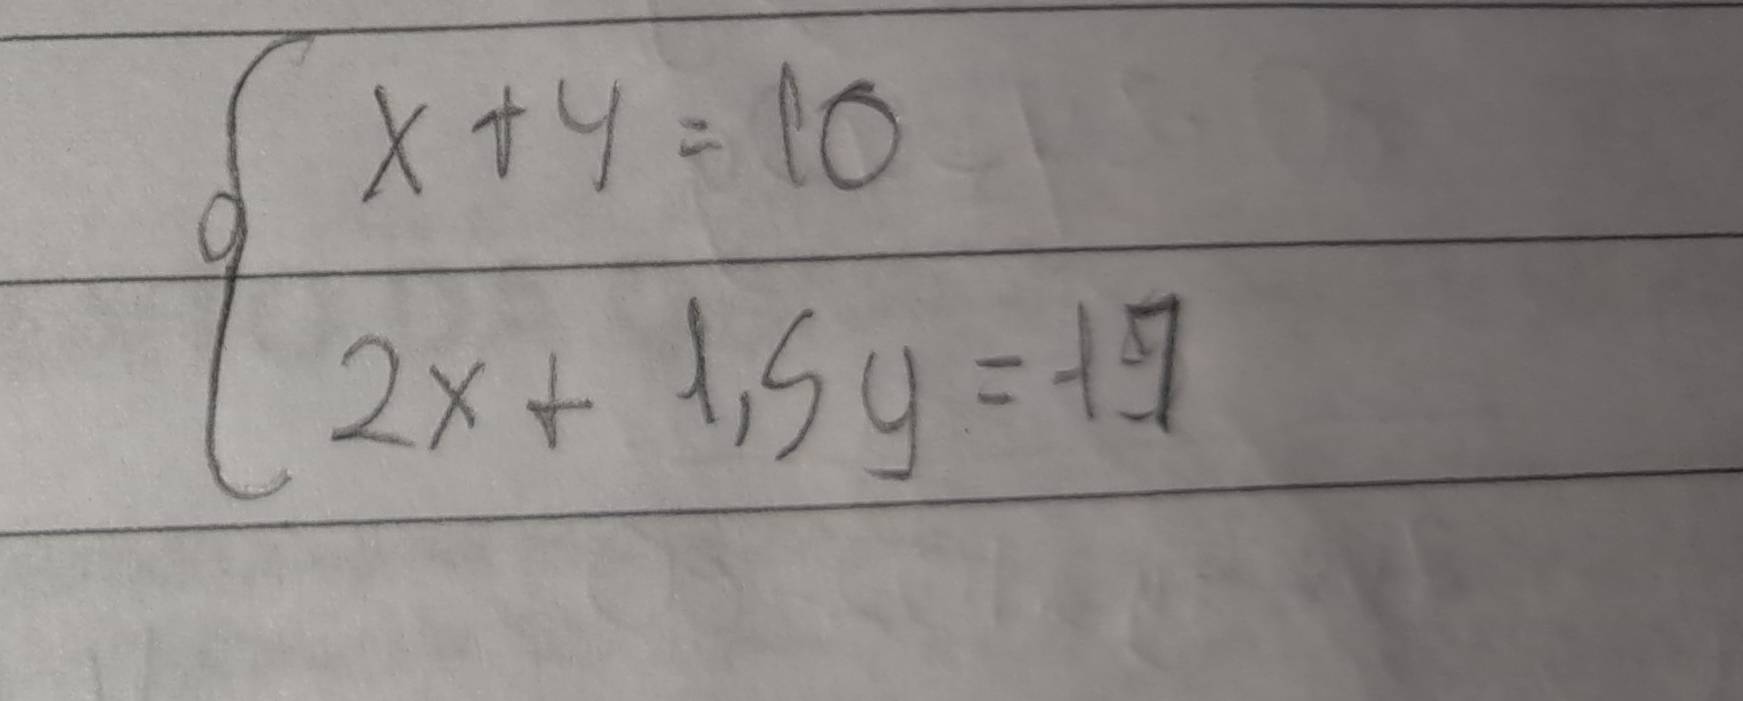 x + y = 10
2x + 1,5y = 17